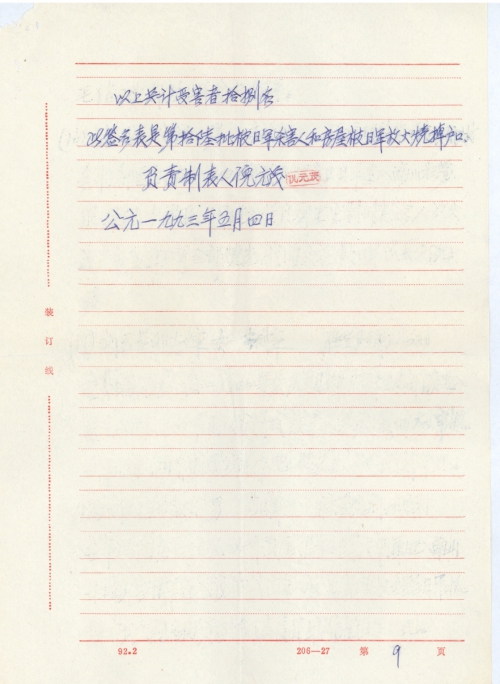 以上共计受害者拾捌名
以签名表是第拾陆批被日军杀害人和房屋被日军放大烧掉户口、
负责制表人倪元
公元一九九三年五月四日
装订线
92.2 206—27 第 9 页